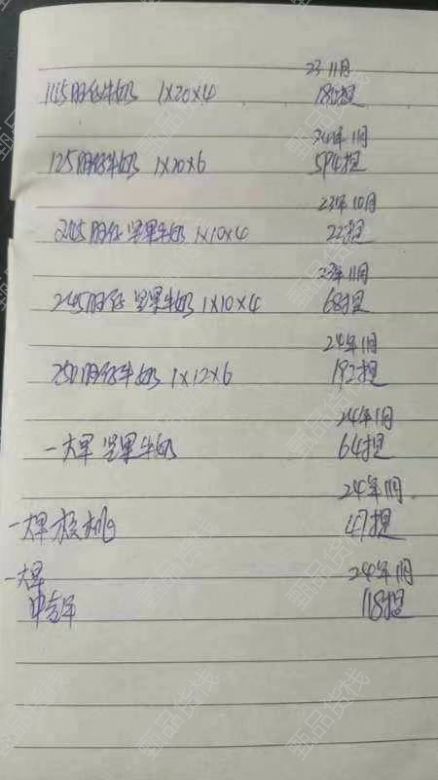 23 11月
牛奶 1×20×4
24年1月
125 牛奶 1×20×6
594提
23年10月
245 坚果牛奶 1×10×4
22提
23年11月
245 坚果牛奶 1×10×4
68提
24年1月
250 牛奶 1×12×6
192提
24年1月
一大早 坚果牛奶
64提
24年1月
一大早 核桃
47提
一大早
24年1月
中老年
118提
甄品货栈